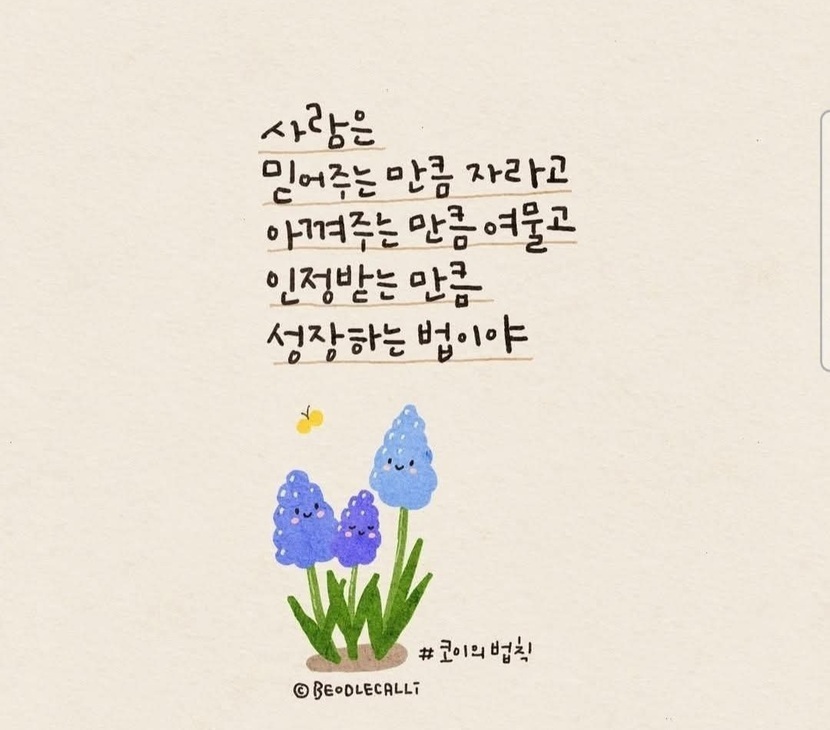 사람은
믿어주는 만큼 자라고
아껴주는 만큼 여물고
인정받는 만큼
성장하는 법이야
#코이의 법칙
©BEODLECALLi